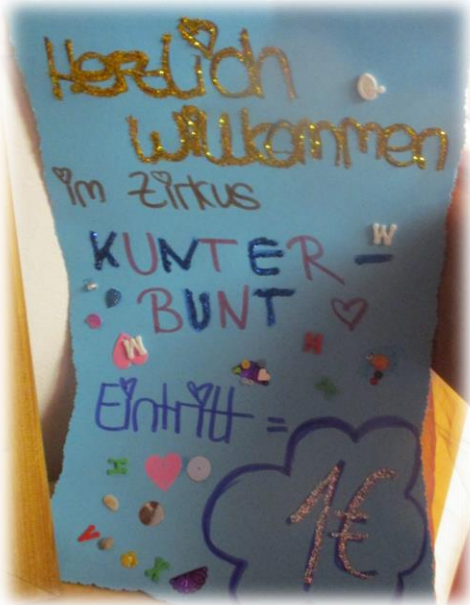 Herzlich
Willkommen
im Zirkus
KUNTER-
BUNT
Eintritt =
1€